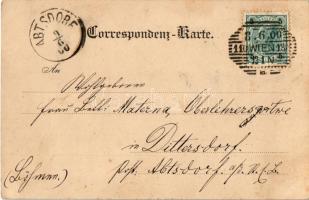 ABTSDORF
9/6
00
Correspondenz-Karte.
8.6.00
WIEN
An
Wohlgeboren
Frau Belli Materna Oberlehrersgattin
in Dittersdorf.
Post. Abtsdorf
(Böhmen.)